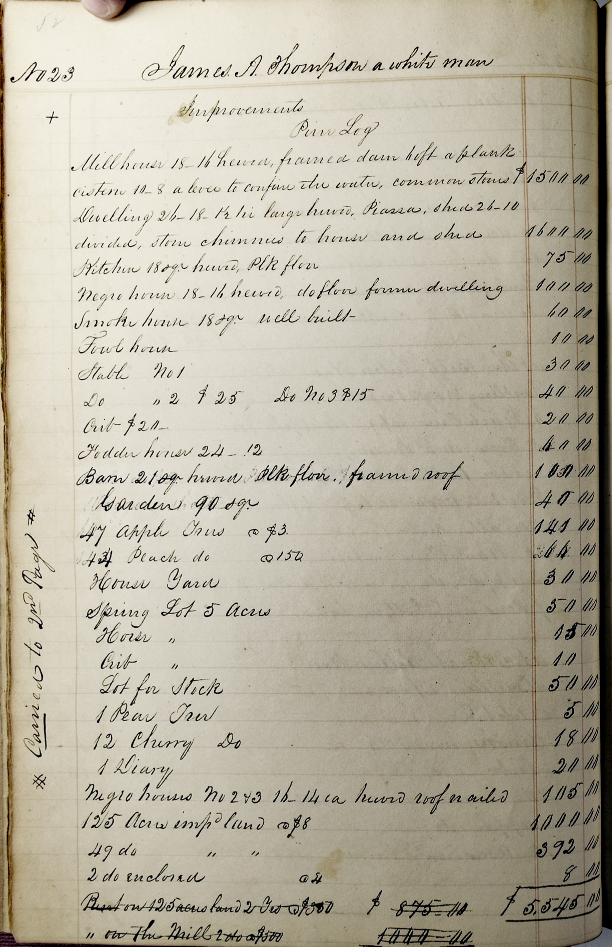 No 23 James A Thompson a white man
+
Improvements
Pine Log
Mill house 18-16 hewed, framed dam loft & plank
cistern 10-8 a levee to confine the water, common stones $1500 00
Dwelling 26-18 1½ hewed, Piazza, shed 26-10
divided, stone chimnies to house and shed 1600 00
Kitchen 18 sqr hewed, Plk floor 75 00
Negro house 18-16 hewed, do floor former dwelling 100 00
Smoke house 18 sqr well built 60 00
Fowl house 10 00
Stable No 1 30 00
Do " 2 $25 Do No 3 $15 40 00
Crib $20- 20 00
Fodder house 24-12 40 00
Barn 21 sqr hewed Plk floor, framed roof 100 00
Garden 90 sqr 40 00
47 Apple Trees @ $3. 141 00
Peach do @ 150
House Yard 30 00
Spring Lot 5 Acres 50 00
Horse " 15 00
Crib " 10 00
Lot for Stock 50 00
1 Pear Tree 5 00
12 Cherry Do 18 00
1 Diary 20 00
Negro houses No 2 & 3 16-14 ea hewed roof nailed 105 00
125 Acre impd land @ $8 1000 00
49 do " " 392 00
2 do enclosed @ 4 8 00
Rent on 125 acres land 2 Yrs $ 875-00 $ 5,545 00
" on The Mill 2 do @ $500 1000-00
# Carried to 2nd Page #